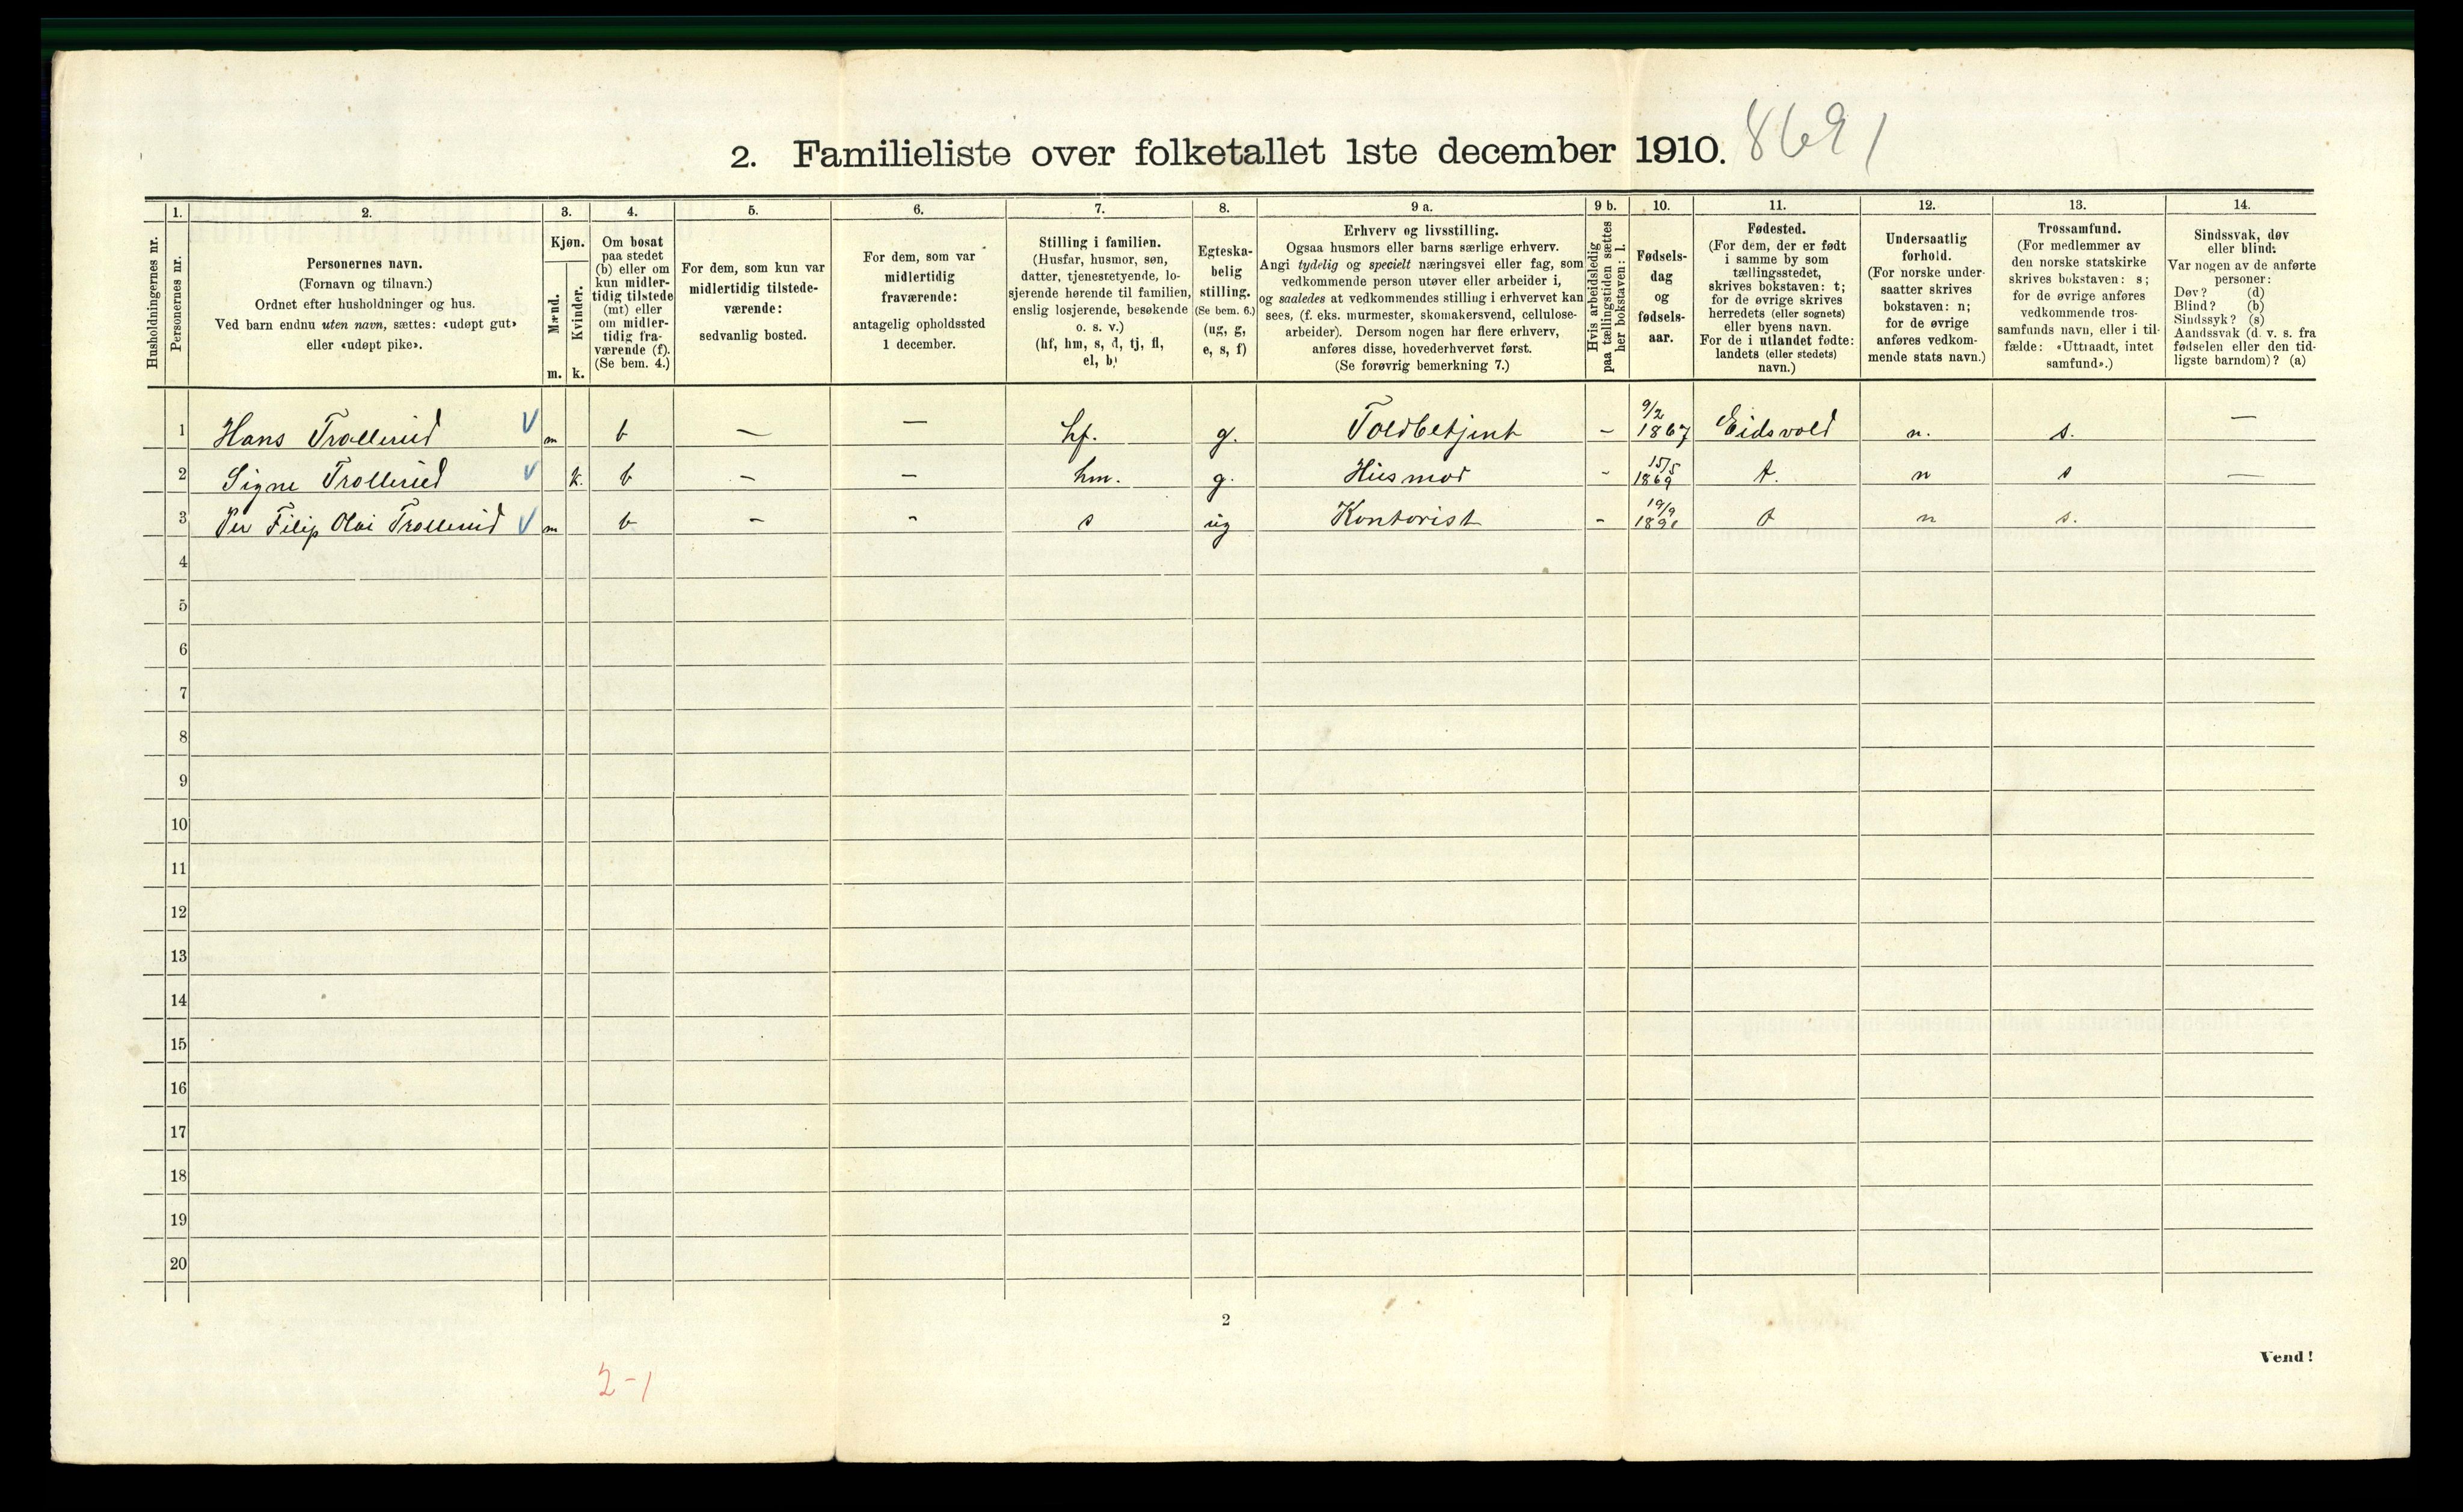 2. Familieliste over folketallet 1ste december 1910. 8691
Husholdningernes nr.
1. Personernes nr.
2. Personernes navn.
(Fornavn og tilnavn.)
Ordnet efter husholdninger og hus.
Ved barn endnu uten navn, sættes: «udøpt gut»
eller «udøpt pike».
3. Kjøn.
Mænd. m.
Kvinder. k.
4. Om bosat
paa stedet
(b) eller om
kun midler-
tidig tilstede
(mt) eller
om midler-
tidig fra-
værende (f).
(Se bem. 4.)
5. For dem, som kun var
midlertidig tilstede-
værende:
sedvanlig bosted.
6. For dem, som var
midlertidig
fraværende:
antagelig opholdssted
1 december.
7. Stilling i familien.
(Husfar, husmor, søn,
datter, tjenestetyende, lo-
sjerende hørende til familien,
enslig losjerende, besøkende
o. s. v.)
(hf, hm, s, d, tj, fl,
el, b)
8. Egteska-
belig
stilling.
(Se bem. 6.)
(ug, g,
e, s, f)
9 a. Erhverv og livsstilling.
Ogsaa husmors eller barns særlige erhverv.
Angi tydelig og specielt næringsvei eller fag, som
vedkommende person utøver eller arbeider i,
og saaledes at vedkommendes stilling i erhvervet kan
sees, (f. eks. murmester, skomakersvend, cellulose-
arbeider). Dersom nogen har flere erhverv,
anføres disse, hovederhvervet først.
(Se forøvrig bemerkning 7.)
9 b. Hvis arbeidsledig
paa tællingstiden sættes
her bokstaven: l.
10. Fødsels-
dag
og
fødsels-
aar.
11. Fødested.
(For dem, der er født
i samme by som
tællingsstedet,
skrives bokstaven: t;
for de øvrige skrives
herredets (eller sognets)
eller byens navn.
For de i utlandet fødte:
landets (eller stedets)
navn.)
12. Undersaatlig
forhold.
(For norske under-
saatter skrives
bokstaven: n;
for de øvrige
anføres vedkom-
mende stats navn.)
13. Trossamfund.
(For medlemmer av
den norske statskirke
skrives bokstaven: s;
for de øvrige anføres
vedkommende tros-
samfunds navn, eller i til-
fælde: «Uttraadt, intet
samfund».)
14. Sindssvak, døv
eller blind:
Var nogen av de anførte
personer:
Døv? (d)
Blind? (b)
Sindssyk? (s)
Aandssvak (d. v. s. fra
fødselen eller den tid-
ligste barndom)? (a)
1 Hans Trøllerud m b — — hf. g. Toldbetjent - 9/2 1867 Eidsvold n. s. —
2 Signe Trøllerud k. b - — hm. g. Husmor - 15/5 1869 t. n s —
3 Per Filip Olai Trøllerud m b - - s ug Kontorist - 19/9 t n s.
4
5
6
7
8
9
10
11
12
13
14
15
16
17
18
19
20
2
Vend!
2-1